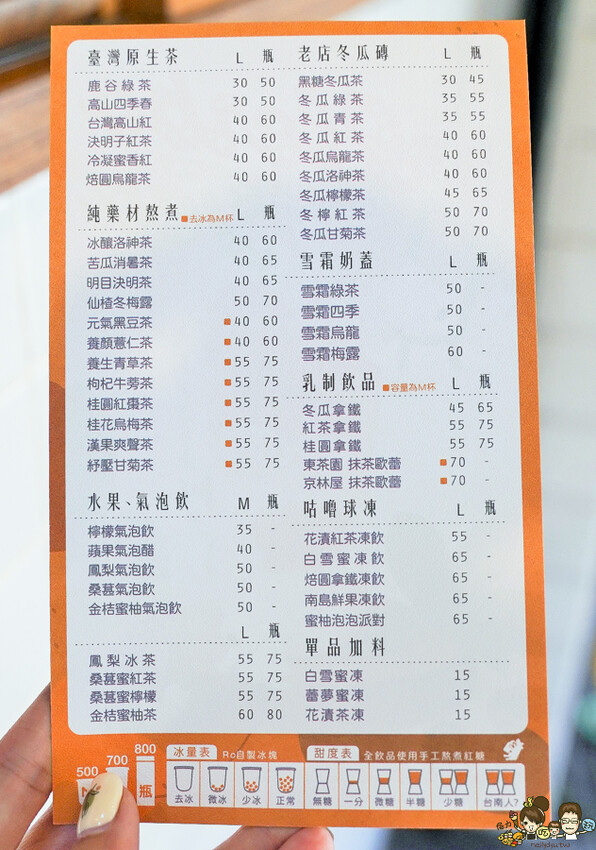 臺灣原生茶 L 瓶
鹿谷綠茶 30 50
高山四季春 30 50
台灣高山紅 40 60
決明子紅茶 40 60
冷凝蜜香紅 40 60
焙圓烏龍茶 40 60
純藥材熬煮 ■去冰為M杯 L 瓶
冰釀洛神茶 40 60
苦瓜消暑茶 40 65
明目決明茶 40 65
仙楂冬梅露 50 70
元氣黑豆茶 ■40 60
養顏薏仁茶 ■40 60
養生青草茶 ■55 75
枸杞牛蒡茶 ■55 75
桂圓紅棗茶 ■55 75
桂花烏梅茶 ■55 75
漢果爽聲茶 ■55 75
紓壓甘菊茶 ■55 75
水果、氣泡飲 M 瓶
檸檬氣泡飲 35 -
蘋果氣泡醋 40 -
鳳梨氣泡飲 50 -
桑葚氣泡飲 50 -
金桔蜜柚氣泡飲 50 -
L 瓶
鳳梨冰茶 55 75
桑葚蜜紅茶 55 75
桑葚蜜檸檬 55 75
金桔蜜柚茶 60 80
老店冬瓜磚 L 瓶
黑糖冬瓜茶 30 45
冬瓜綠茶 35 55
冬瓜青茶 35 55
冬瓜紅茶 40 60
冬瓜烏龍茶 40 60
冬瓜洛神茶 40 60
冬瓜檸檬茶 45 65
冬檸紅茶 50 70
冬瓜甘菊茶 50 70
雪霜奶蓋 L 瓶
雪霜綠茶 50 -
雪霜四季 50 -
雪霜烏龍 50 -
雪霜梅露 60 -
乳制飲品 ■容量為M杯 L 瓶
冬瓜拿鐵 45 65
紅茶拿鐵 55 75
桂圓拿鐵 55 75
東茶園 抹茶歐蕾 ■70 -
京林屋 抹茶歐蕾 ■70 -
咕嚕球凍 L 瓶
花漬紅茶凍飲 55 -
白雪蜜凍飲 65 -
焙圓拿鐵凍飲 65 -
南島鮮果凍飲 65 -
蜜柚泡泡派對 65 -
單品加料
白雪蜜凍 15
蕾夢蜜凍 15
花漬茶凍 15
500 700 800
瓶
冰量表 Ro自製冰塊
去冰 微冰 少冰 正常
甜度表 全飲品使用手工熬煮紅糖
無糖 一分 微糖 半糖 少糖 台南人?